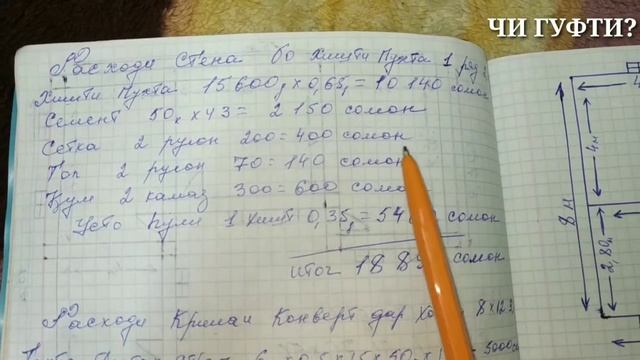 ЧИ ГУФТИ?
Расходи стена бо Хишти Пухта 1 ряд
Хишти Пухта 15600 х 0,65 = 10140 сомон
Семент 50 х 43 = 2150 сомон
Сетка 2 рулон 200 = 400 сомон
Топ 2 рулон 70 = 140 сомон
Кум 2 камаз 300 = 600
Усто пули 1 хишт 0,35 = 54 сомон
итог 188 сомон
Расходи Крыши Конверт дар 8 х 12
8 м
4 м
2,80